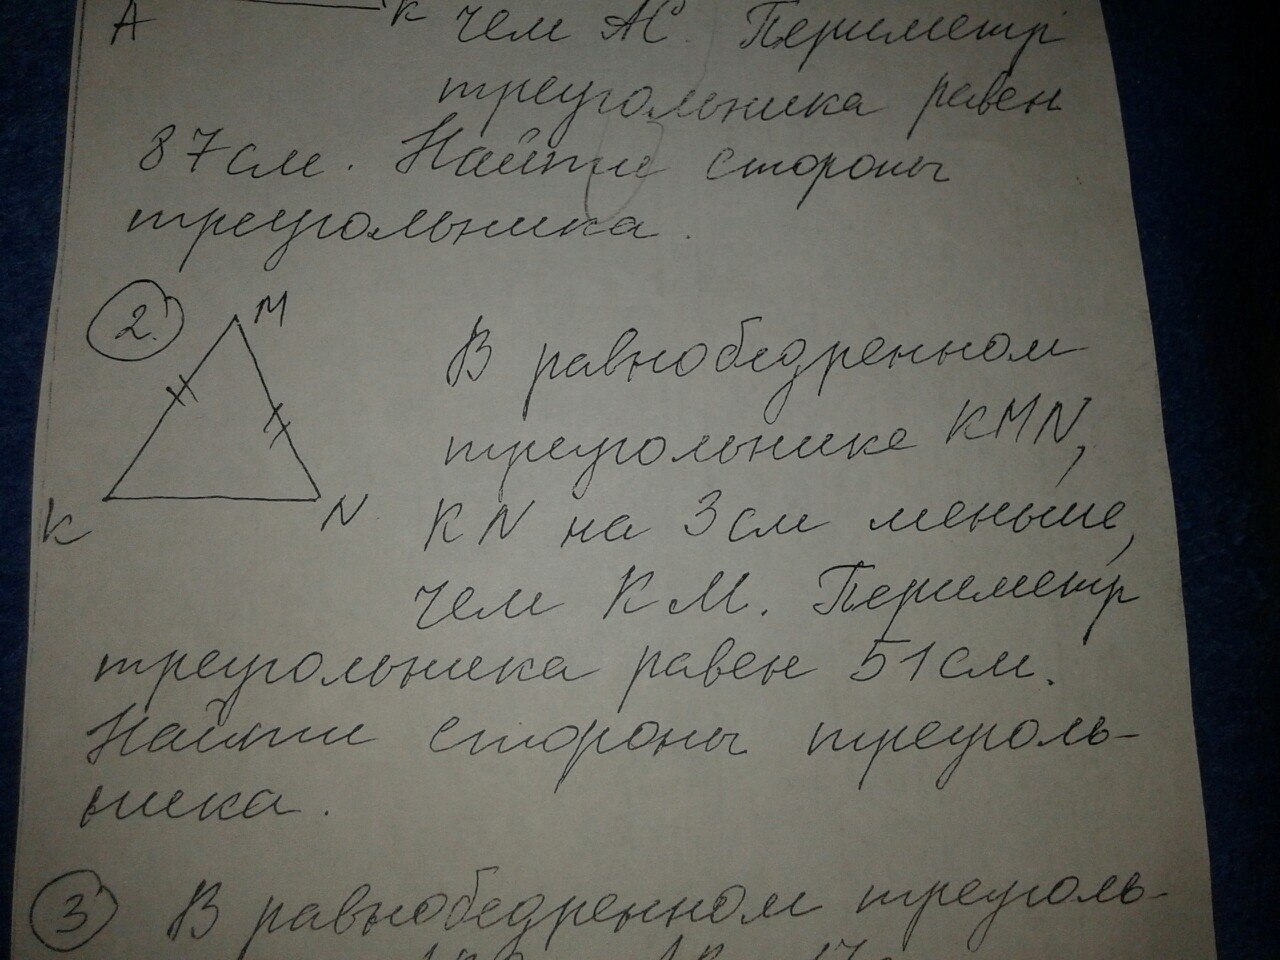 A К чем АС. Периметр
треугольника равен
87см. Найти стороны
треугольника.
2. M
В равнобедренном
треугольнике KMN,
K N KN на 3см меньше,
чем КМ. Периметр
треугольника равен 51см.
Найти стороны треуголь-
ника.
3 В равнобедренном треуголь-